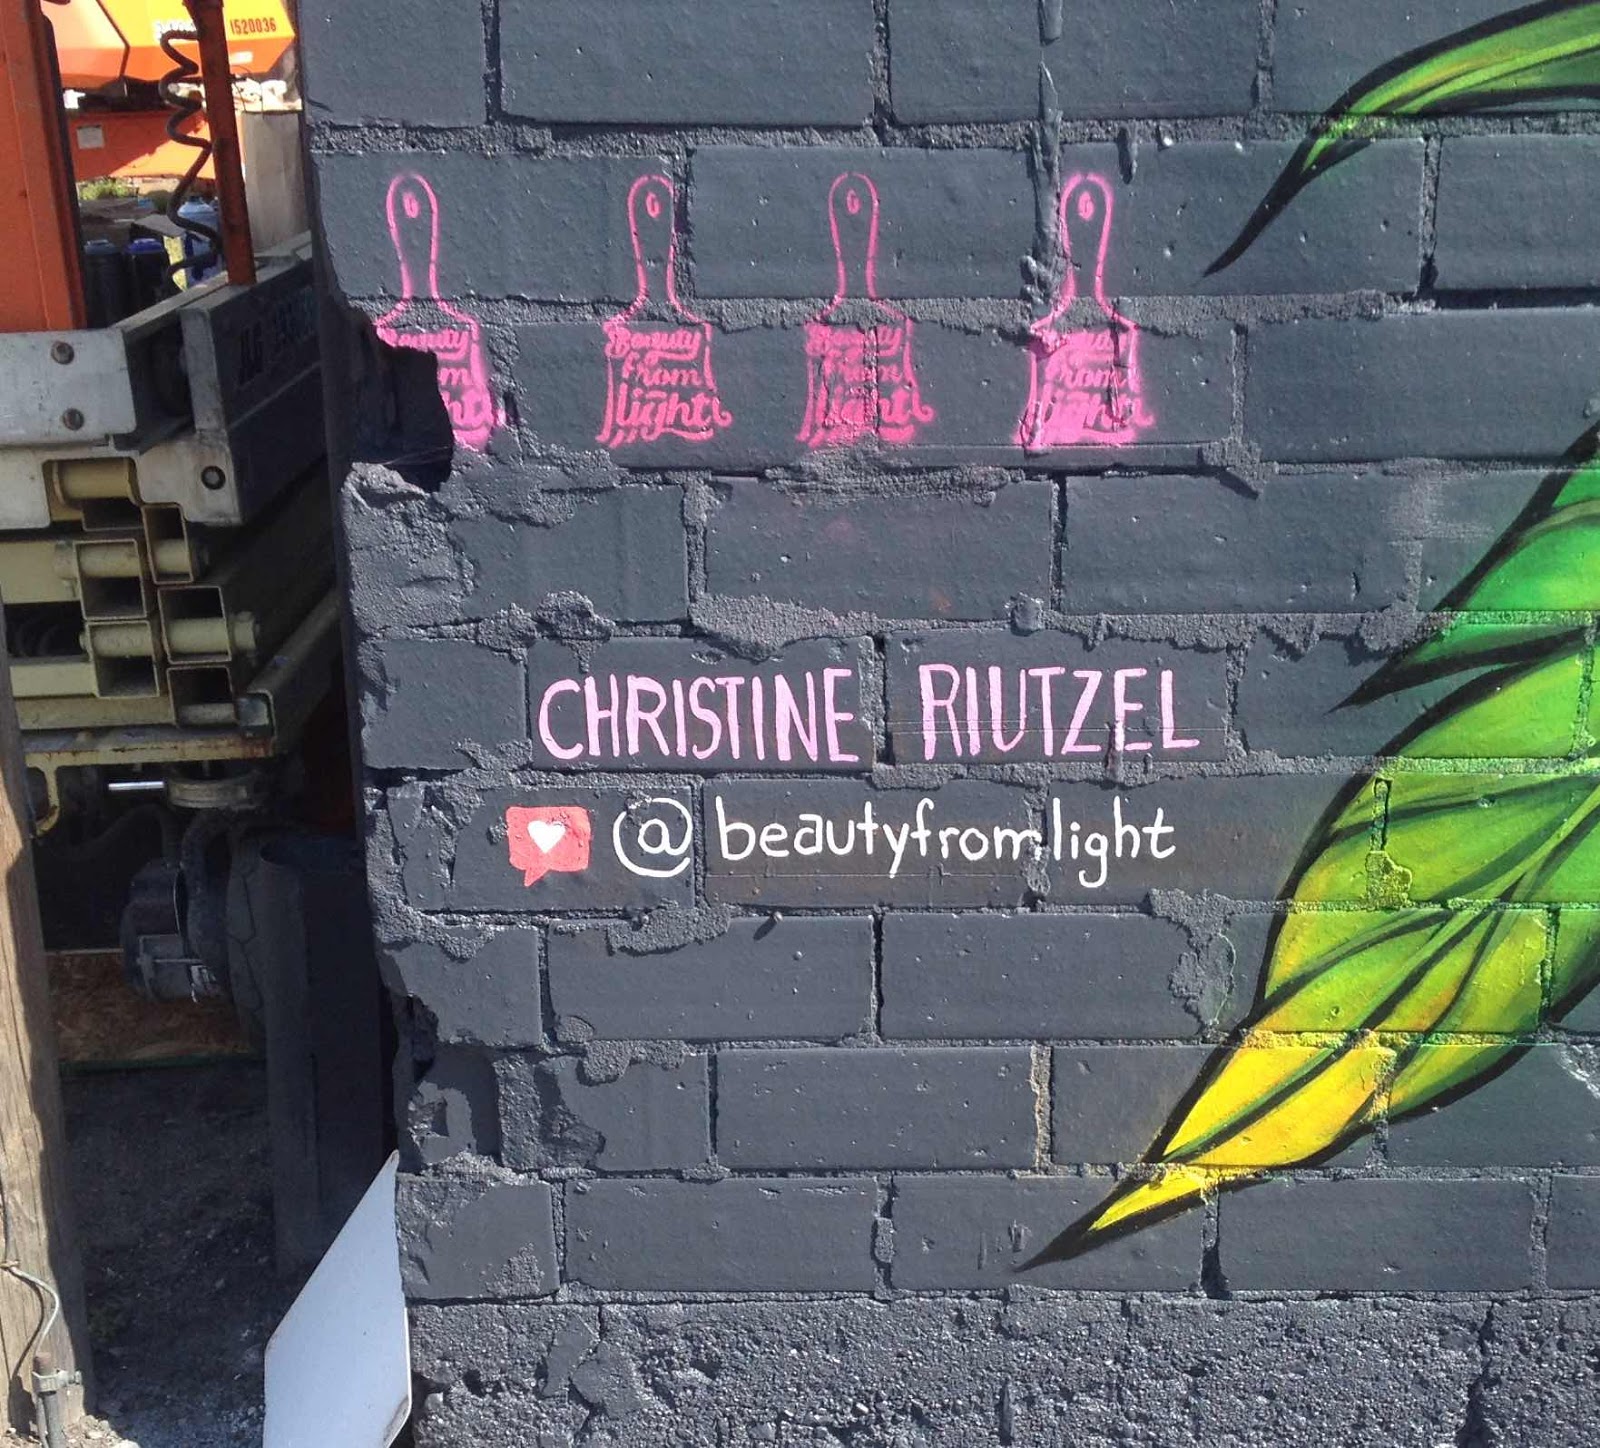 1520036
Beauty
from
light
Beauty
from
light
Beauty
from
light
Beauty
from
light
CHRISTINE RIUTZEL
@beautyfromlight